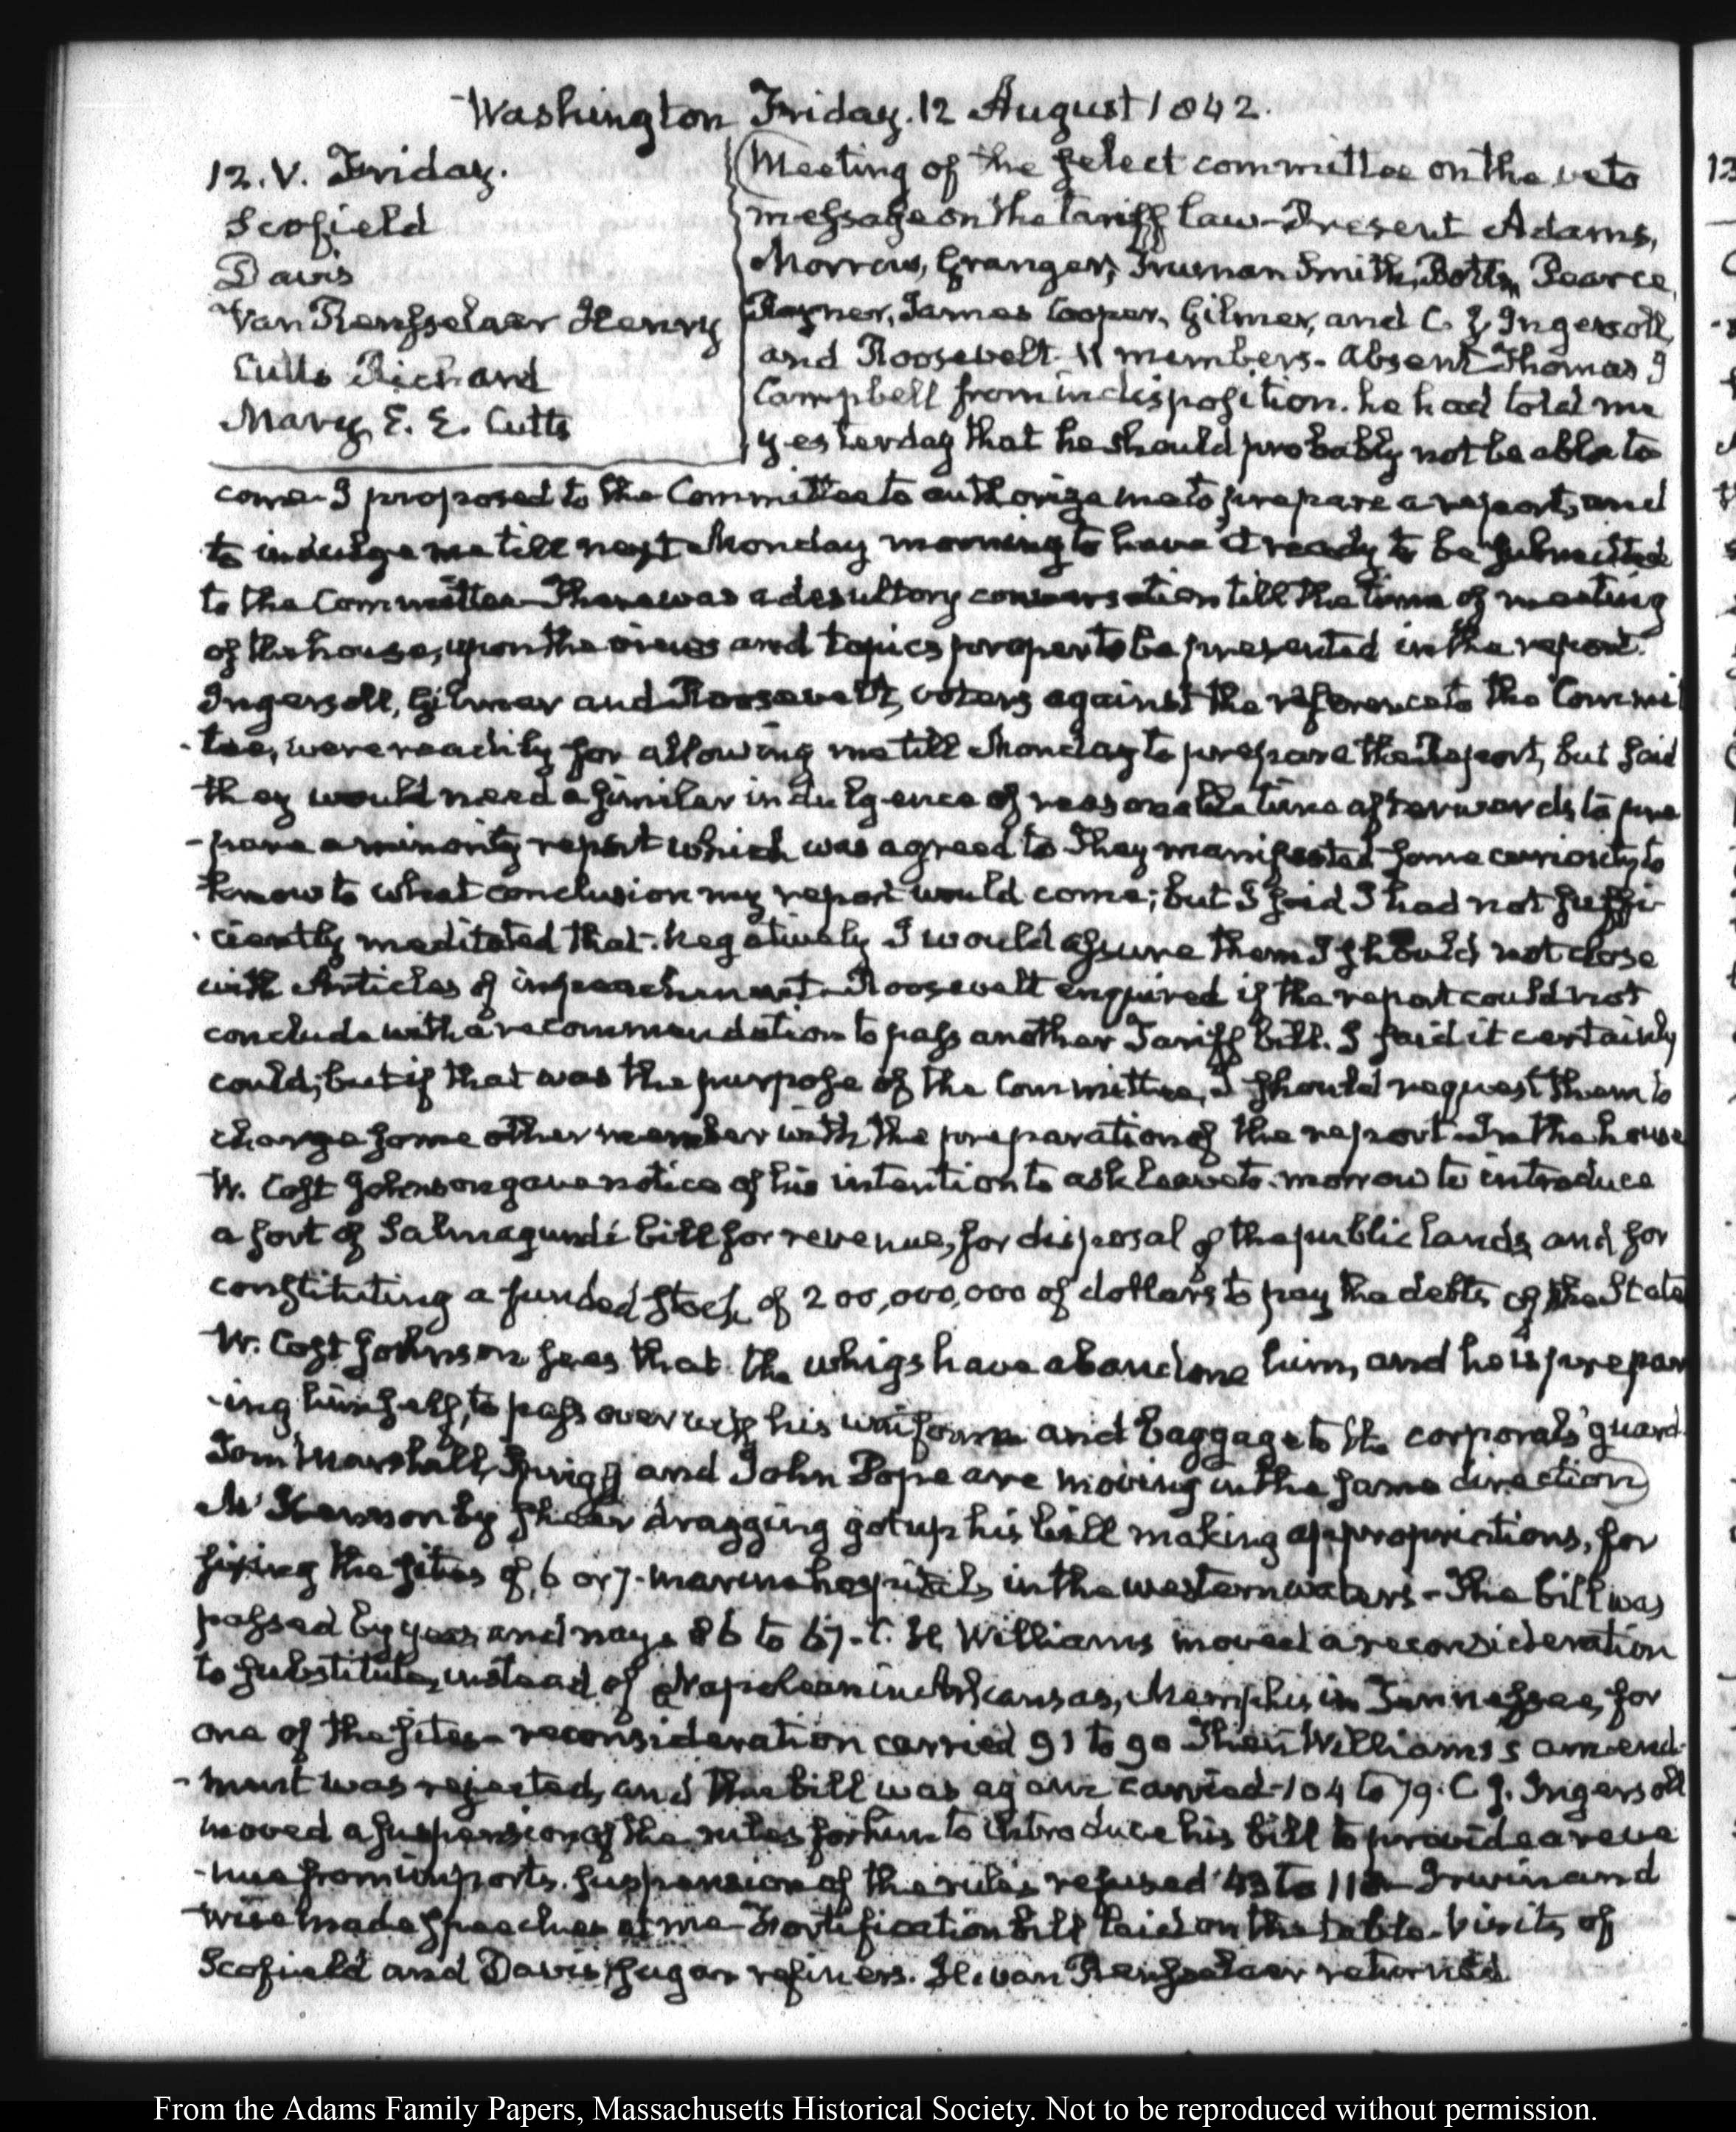 Washington Friday. 12 August 1842.
12. V. Friday.
Scofield
Davis
Van Rensselaer Henry
Cutts Richard
Mary E. E. Cutts
Meeting of the select committee on the veto
message on the tariff law - Present Adams,
Morrow, Granger, Truman Smith, Botts, Pearce,
Rayner, James Cooper, Gilmer, and C. J. Ingersoll,
and Roosevelt. 11 members - absent Thomas J
Campbell from indisposition. he had told me
yesterday that he should probably not be able to
come - I proposed to the Committee to authorize me to prepare a report, and
to indulge me till next Monday morning to have it ready to be submitted
to the Committee - There was a desultory conversation till the time of meeting
of the house, upon the views and topics proper to be presented in the report.
Ingersoll, Gilmer and Roosevelt, voters against the reference to the Commit
-tee, were readily for allowing me till Monday to prepare the Report, but said
they would need a similar indulgence of reasonable time afterwards to pre
-pare a minority report which was agreed to They manifested some curiosity to
know to what conclusion my report would come; but I said I had not suffi-
-ciently meditated that. Negatively I would assure them I should not close
with Articles of impeachment - Roosevelt enquired if the report could not
conclude with a recommendation to pass another Tariff bill. I said it certainly
could; but if that was the purpose of the Committee, I should request them to
charge some other member with the preparation of the report - In the house
W. Cost Johnson gave notice of his intention to ask leave to-morrow to introduce
a sort of Salmagundi bill for revenue, for disposal of the public lands, and for
constituting a funded stock of 200,000,000 of dollars to pay the debts of the State
W. Cost Johnson sees that the whigs have abandone him, and he is prepar
-ing himself, to pass over with his uniform and baggage to the corporals' guard.
Tom Marshall, Sprigg and John Pope are moving in the same direction
McKennon by sheer dragging got up his bill making appropriations, for
fixing the sites of 6 or 7 marine hospitals in the western waters - The bill was
passed by yeas and nays 86 to 67 - C. H. Williams moved a reconsideration
to substitute, instead of Napoleon in Arkansas, Memphis in Tennessee, for
one of the sites - reconsideration carried 91 to 90 Then Williams's amend-
-ment was rejected, and the bill was again carried - 104 to 79. C J. Ingersoll
moved a suspension of the rules for him to introduce his bill to provide a reve
-nue from imports. suspension of the rules refused - Irwin and
Wise made speeches at me - Fortification bill laid on the table - Visits of
Scofield and Davis sugar refiners. H. van Rensselaer returned
From the Adams Family Papers, Massachusetts Historical Society. Not to be reproduced without permission.